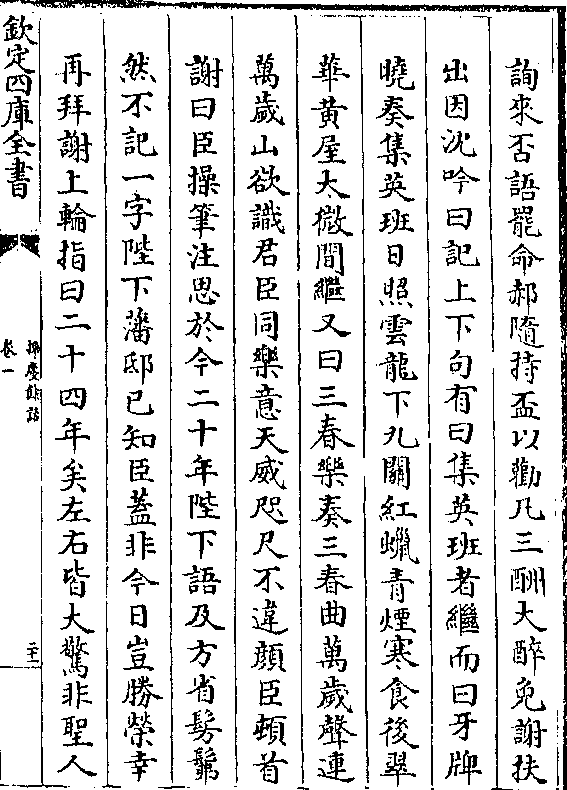 詢來否語罷命郝隨持盃以勸凡三酬大醉免謝扶
出因沈吟曰記上下句有曰集英班者繼而曰牙牌
曉奏集英班日照雲龍下九關紅蠟青煙寒食後翠
華黄屋太微間繼又曰三春樂奏三春曲萬歲聲連
萬歲山欲識君臣同樂意天威咫尺不違顔臣頓首
謝曰臣操筆注思於今二十年陛下語及方省髣髴
然不記一字陛下藩邸已知臣蓋非今日豈勝榮幸
再拜謝上輪指曰二十四年矣左右皆大驚非聖人
欽定四庫全書
揮麈餘話
卷一
二十二